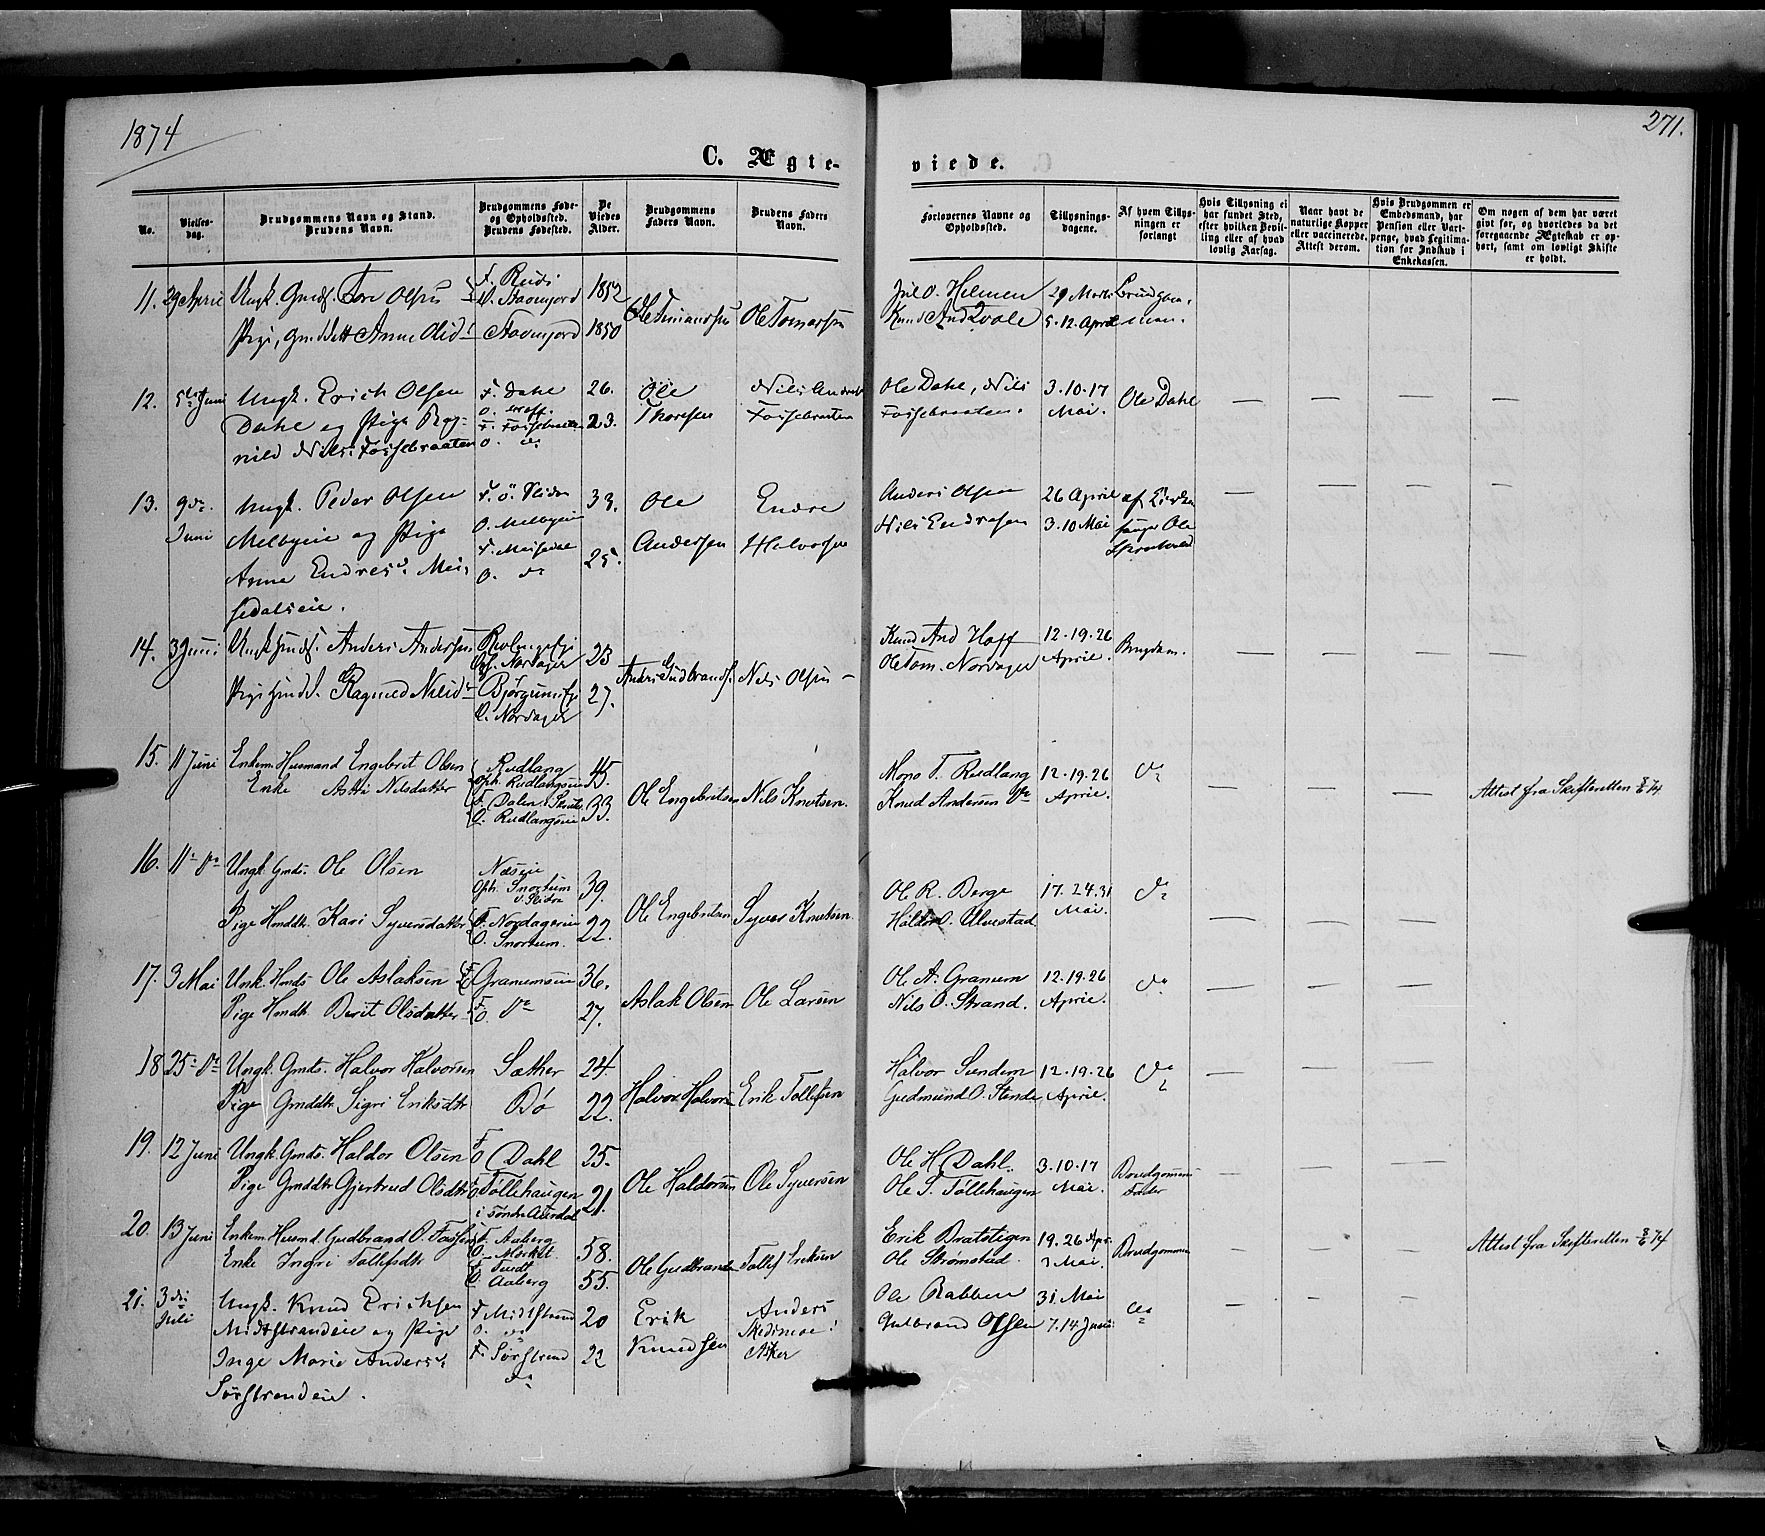 1874
271.
C. Ægte-
viede.
No.
Vielses-
dag.
Brudgommens Navn og Stand.
Brudens Navn.
Brudgommens Føde-
og Opholdssted.
Brudens Fødested.
De
Viedes
Alder.
Brudgommens
Faders Navn.
Brudens Faders
Navn.
Forlovernes Navne og
Opholdssted.
Tillysnings-
dagene.
Af hvem Tillys-
ningen er
forlangt
Hvis Tillysning ei
har fundet Sted,
efter hvilken Bevil-
ling eller af hvad
lovlig Aarsag.
Naar havt de
naturlige Kopper
eller vaccinerede.
Attest derom.
Hvis Brudgommen er
Embedsmand, har
Pension eller Vart-
penge, hvad Legitima-
tion for Indskud i
Enkekassen.
Om nogen af dem har været
gift før, og hvorledes da det
foregaaende Ægteskab er op-
hørt, samt om lovligt Skifte
er holdt.
11. 29 April Ungk. Gmds. Tore Olsen F. Rudi 1852
O. Stavenfjord
Pige, Gmddtt Anne Olsd 1850 Ole Ole Tomassen
Jul O. Helmen 29 Marts Brudgom-
Knud And Qvale 5. 12. April men.
12. 5te Juni Ungk. Erich Olsen F. Dahl 26. Ole Nils
Dahl og Pige Rag- F. 23. Thoresen Fossebraaten
nild Nilsd Fossebraaten O. do
Ole Dahl, Nils 3. 10. 17 Ole Dahl
Fossebraaten. Mai.
13. 9de Ungk. Peder Olsen F. Ø. Slidre 33. Ole Endre
Juni Melbyeie og Pige O. Melbyeie Andersen Halvorsen
Anne Endresd. Mei- 25.
sdalseie. O. do
Anders Olsen 26 April af
Nils Endresen 3. 10 Mai Ole
14. 3 Juni Ungk Gmds. Anders Andersen 23 Anders Gudbrands. Nils Olsen
O. Nordager
Pige Gmdd. Ragnild Nilsd 27.
O. Nordager
Knud And Hoff 12. 19. 26
Ole Tom. Nordager April. Brudgm.
15. 11 Juni Enkem. Husmand Engebret Olsen Rudlang 45. Ole Engebretsen Nils Knutsen.
Enke Astri Nilsdatter Oph. Rudlangseie
F. Dalen 33.
O. Rudlangseie
Mons T. Rudlang 12. 19. 26 do
Knud Andersen do April. Attest fra Skifteretten /74
16. 11te do Ungk. Gmds. Ole Olsen Næseie 39. Ole Engebretsen Syver Knutsen.
Oph. Snortum
V. Slidre
Pige Hmddtr Kari Syversdatter F. Nordagereie 22.
O. Snortum.
Ole R. Berge 17. 24. 31 do
Haldor O. Ulvestad Mai.
17. 3 Mai Unk. Hmds Ole Aslaksen F. O. Granumseie 36. Aslak Olsen Ole Larsen
Pige Hmdtr. Berit Olsdatter F. O. do 27.
Ole A. Granum 12. 19. 26 do
Nils O. Strand. April.
18 25de do Ungk. Gmds. Halvor Halvorsen Sæther 24. Halvor Halvorsen Erik Tollefsen
Pige Gmddtr Sigri Eriksdtr Bø 22.
Halvor Sundem 12. 19. 26 do
Gudmund O. April.
19. 12 Juni Ungk. Gmds. Haldor Olsen F. O. Dahl 25. Ole Haldorsen Ole Syversen
Pige Gmddtr Gjertrud Olsdtr F. O. Tollehaugen 21.
i Søndre Aurdal
Ole H. Dahl. 3. 10. 17 Brudgommens
Ole S. Tollehaugen Mai. Fader
20. 13 Juni Enkem. Husmd. Gudbrand O. F. Aaberg 58. Ole Gudbrands Tollef Eriksen
Enke Ingri Tollefsdtr 55.
O. Aaberg
Erik Bratstigen 19. 26 Apr. Brudgommen
Ole Strømstad. 3 Mai. Attest fra Skifteretten /74
21. 3die Ungk. Knud Erichsen F. Midtstrand 20 Erik Anders
Juli Midtstrandeie og Pige O. do Knudsen
Inge Marie Anders. F. Sørstrand 22 Asker
Sørstrandeie. do
Ole Rabben 31 Mai do
Gulbrand Olsen 7. 14 Juni